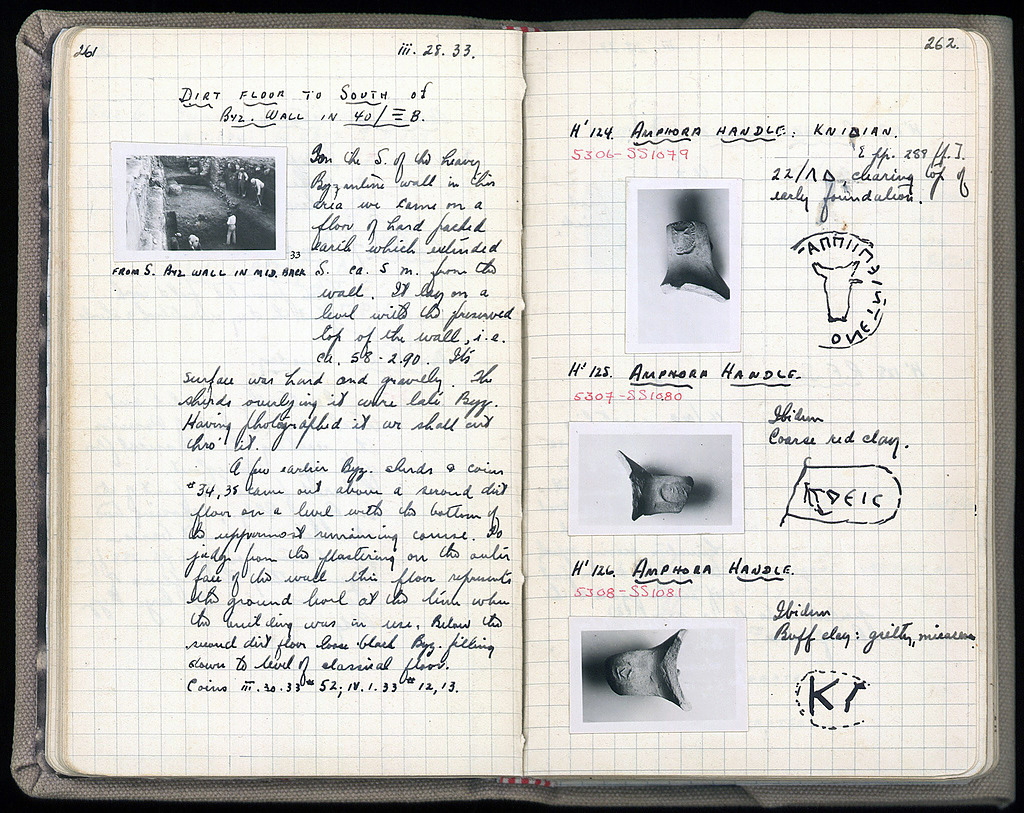 261
iii. 28. 33.
DIRT FLOOR TO SOUTH OF
BYZ. WALL IN 40/Ξ B.
33
FROM S. BYZ WALL IN MID. BACK
On the S. of the heavy
Byzantine wall in this
area we came on a
floor of hard packed
earth which extended
S. ca. 5 m. from the
wall. It lay on a
level with the preserved
top of the wall, i.e.
ca. 58-2.90. Its
surface was hard and gravelly. The
sherds overlying it were late Byz.
Having photographed it we shall cut
thro' it.
A few earlier Byz. sherds & coins
#34, 35 came out above a second dirt
floor on a level with the bottom of
the uppermost remaining course. To
judge from the plastering on the outer
face of the wall this floor represents
the ground level at the time when
the building was in use. Below the
second dirt floor loose black Byz. filling
down to level of classical floor.
Coins III.30.33 # 52; IV.1.33 # 12, 13.
262.
H' 124. AMPHORA HANDLE: KNIDIAN.
5306-SS1079
22/ΛΔ, clearing top of
early foundation.
H' 125. AMPHORA HANDLE.
5307-SS1080
Ibidem
Coarse red clay.
H' 126. AMPHORA HANDLE.
5308-SS1081
Ibidem
Buff clay: gritty, micaceous
ΚΤ